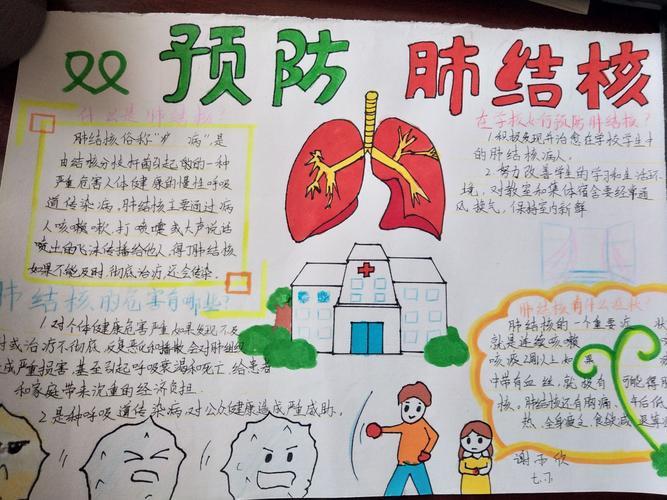 预防 肺结核
什么是肺结核?
肺结核俗称"痨病"是
由结核分枝杆菌引起的一种
严重危害人体健康的慢性呼吸
道传染病。肺结核主要通过病
人咳嗽、打喷嚏或大声说话
喷出的飞沫传播给他人,得了肺结核
如果不能及时、彻底治疗还会传染。
肺结核的危害有哪些?
1.对个体健康危害严重,如果发现不及
时或治疗不彻底,反复恶化和播散会对肺组织
造成严重损害 甚至引起呼吸衰竭和死亡 给患者
和家庭带来沉重的经济负担
2.是种呼吸道传染病,对公众健康造成严重威胁。
在学校如何预防肺结核?
1.积极发现并治愈在学校学生中
的肺结核病人。
2.努力改善学生的学习和生活环
境,对教室和集体宿舍要经常通
风、换气,保持室内新鲜
肺结核有什么症状?
肺结核的一个重要症状
就是连续咳嗽
咳痰2周以上如果
中带有血丝,就极有可能得
核。肺结核还有胸痛、午后低
热、全身疲乏、食欲减
谢雨欣